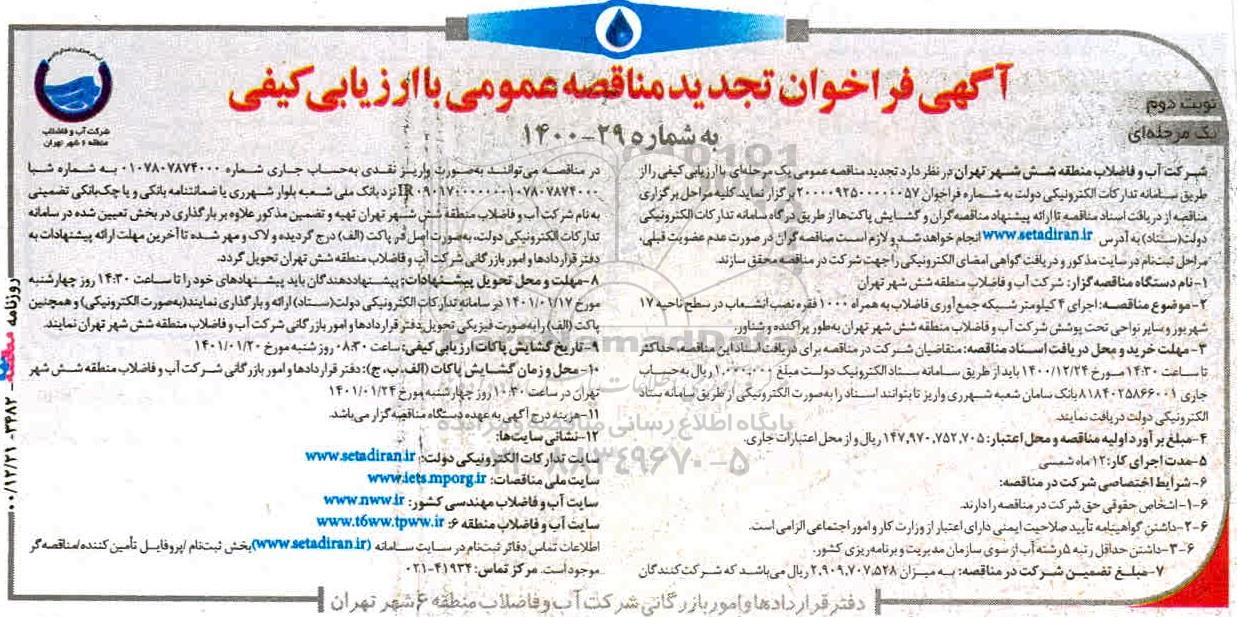 آگهی فراخوان تجدید مناقصه عمومی با ارزیابی کیفی
به شماره ۲۹-۱۴۰۰
نوبت دوم
یک مرحله‌ای
شرکت آب و فاضلاب
منطقه ۶ شهر تهران
شرکت آب و فاضلاب منطقه شش شهر تهران در نظر دارد تجدید مناقصه عمومی یک مرحله‌ای با ارزیابی کیفی را از
طریق سامانه تدارکات الکترونیکی دولت به شماره فراخوان ۲۰۰۰۰۹۲۵۰۰۰۰۰۰۵۷ برگزار نماید کلیه مراحل برگزاری
مناقصه از دریافت اسناد مناقصه تا ارائه پیشنهاد مناقصه‌گران و گشایش پاکت‌ها از طریق درگاه سامانه تدارکات الکترونیکی
دولت (ستاد) به آدرس www.setadiran.ir انجام خواهد شد و لازم است مناقصه گران در صورت عدم عضویت قبلی،
مراحل ثبت‌نام در سایت مذکور و دریافت گواهی امضای الکترونیکی را جهت شرکت در مناقصه محقق سازند.
۱-نام دستگاه مناقصه گزار: شرکت آب و فاضلاب منطقه شش شهر تهران
۲-موضوع مناقصه: اجرای ۴ کیلومتر شبکه جمع‌آوری فاضلاب به همراه ۱۰۰۰ فقره نصب انشعاب در سطح ناحیه ۱۷
شهریور و سایر نواحی تحت پوشش شرکت آب و فاضلاب منطقه شش شهر تهران به‌طور پراکنده و شناور.
۳-مهلت خرید و محل دریافت اسناد مناقصه: متقاضیان شرکت در مناقصه برای دریافت اسناد این مناقصه، حداکثر
تا ساعت ۱۴:۳۰ مورخ ۱۴۰۰/۱۲/۲۴ باید از طریق سامانه ستاد الکترونیک دولت مبلغ ۱.۰۰۰.۰۰۱ ریال به حساب
جاری ۸۱۸۴۰۲۵۸۶۶۰۰۱ بانک سامان شعبه شهرری واریز تا بتوانند اسناد را به‌صورت الکترونیکی از طریق سامانه ستاد
الکترونیکی دولت دریافت نمایند.
۴-مبلغ برآورد اولیه مناقصه و محل اعتبار: ۱۴۷,۹۷۰,۷۵۲,۷۰۵ ریال و از محل اعتبارات جاری.
۵-مدت اجرای کار: ۱۲ ماه شمسی
۶-شرایط اختصاصی شرکت در مناقصه:
۶-۱-اشخاص حقوقی حق شرکت در مناقصه را دارند.
۶-۲-داشتن گواهینامه تأیید صلاحیت ایمنی دارای اعتبار از وزارت کار و امور اجتماعی الزامی است.
۶-۳-داشتن حداقل رتبه ۵ رشته آب از سوی سازمان مدیریت و برنامه‌ریزی کشور.
۷-مبلغ تضمین شرکت در مناقصه: به میزان ۲.۹۰۹,۷۰۷,۵۲۸ ریال می‌باشد که شرکت‌کنندگان
در مناقصه می‌توانند به‌صورت واریز نقدی به‌حساب جاری شماره ۰۱۰۷۸۰۷۸۷۴۰۰۰ به شماره شبا
نزد بانک ملی شعبه بلوار شهرری یا ضمانتنامه بانکی و یا چک بانکی تضمینی
به نام شرکت آب و فاضلاب منطقه شش شهر تهران تهیه و تضمین مذکور علاوه بر بارگذاری در بخش تعیین شده در سامانه
تدارکات الکترونیکی دولت، به‌صورت اصل در پاکت (الف) درج گردیده و لاک و مهر شده تا آخرین مهلت ارائه پیشنهادات به
دفتر قراردادها و امور بازرگانی شرکت آب و فاضلاب منطقه شش تهران تحویل گردد.
۸-مهلت و محل تحویل پیشنهادات: پیشنهاددهندگان باید پیشنهادهای خود را تا ساعت ۱۴:۳۰ روز چهارشنبه
مورخ ۱۴۰۱/۰۱/۱۷ در سامانه تدارکات الکترونیکی دولت (ستاد) ارائه و بارگذاری نمایند (به‌صورت الکترونیکی) و همچنین
پاکت (الف) را به‌صورت فیزیکی تحویل دفتر قراردادها و امور بازرگانی شرکت آب و فاضلاب منطقه شش شهر تهران نمایند.
۹-تاریخ گشایش پاکات ارزیابی کیفی: ساعت ۰۸:۳۰ روز شنبه مورخ ۱۴۰۱/۰۱/۲۰
۱۰-محل و زمان گشایش پاکات (الف، ب، ج): دفتر قراردادها و امور بازرگانی شرکت آب و فاضلاب منطقه شش شهر
تهران در ساعت ۱۰:۳۰ روز چهارشنبه مورخ ۱۴۰۱/۰۱/۲۴
۱۱-هزینه درج آگهی به عهده دستگاه مناقصه گزار می‌باشد.
۱۲-نشانی سایت‌ها:
سایت تدارکات الکترونیکی دولت: www.setadiran.ir
سایت ملی مناقصات: www.iets.mporg.ir
سایت آب و فاضلاب مهندسی کشور: www.nww.ir
سایت آب و فاضلاب منطقه ۶: www.t6ww.tpww.ir
اطلاعات تماس دفاتر ثبت‌نام در سایت سامانه (www.setadiran.ir) بخش ثبت‌نام /پروفایل تأمین کننده/مناقصه‌گر
موجود است. مرکز تماس: ۴۱۹۳۴-۰۲۱
دفتر قراردادها و امور بازرگانی شرکت آب و فاضلاب منطقه ۶ شهر تهران
روزنامه مناقصه - ۳۳۸۲ - ۰۰/۱۲/۲۱
پایگاه اطلاع رسانی مناقصه و مزایده
۰۲۱-۸۸۳۴۹۶۷۰-۵